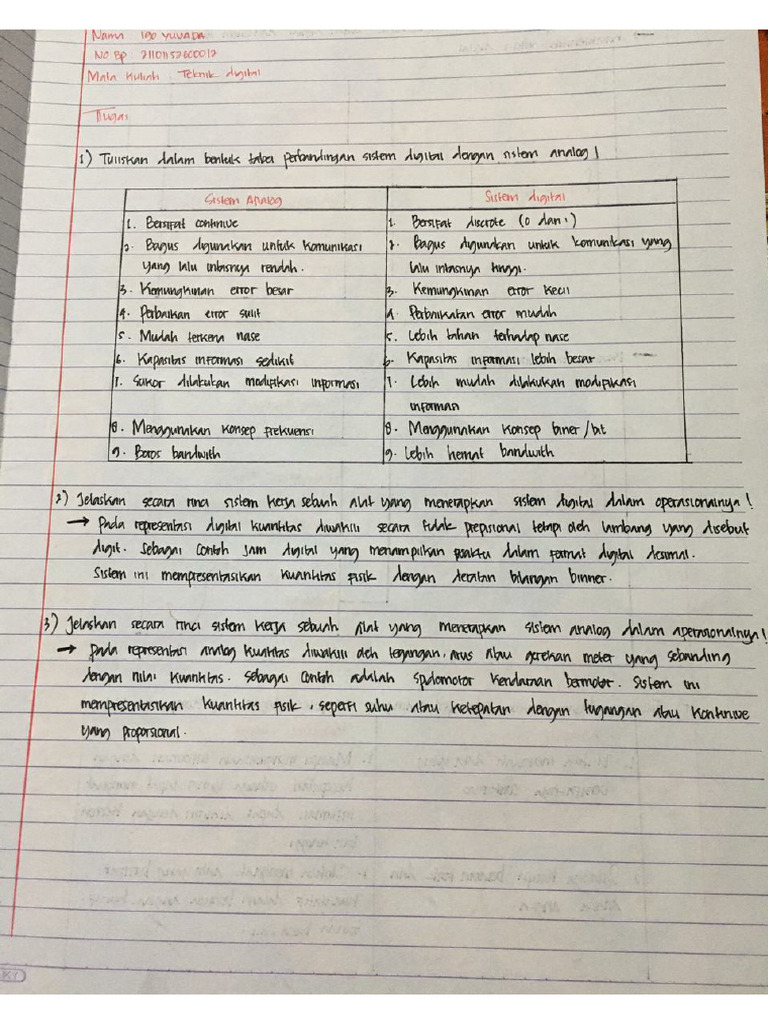 Nama : IBO YUVADA
NO Bp : 21101152600012
Mata Kuliah : Teknik digital
Tugas
1) Tuliskan dalam bentuk tabel perbandingan sistem digital dengan sistem analog !
Sistem Analog
1. Bersifat continive
2. Bagus digunakan untuk komunikasi
yang lalu intasnya rendah.
3. Kemungkinan error besar
4. Perbaikan error sulit
5. Mudah terkena nase
6. Kapasitas informasi sedikit
7. Sukar dilakukan modifikasi informasi
8. Menggunakan konsep frekuensi
9. Boros bandwith
Sistem digital
1. Bersifat discrote (0 dan 1)
2. Bagus digunakan untuk komunikasi yang
lalu intasnya tinggi.
3. Kemungkinan error kecil
4. Perbaikatan error mudah
5. Lebih tahan terhadap nase
6. Kapasitas informasi lebih besar
7. Lebih mudah dilakukan modifikasi
informasi
8. Menggunakan konsep biner / bit
9. Lebih hemat bandwith
2) Jelaskan secara rinci sistem kerja sebuah alat yang menerapkan sistem digital dalam operasionalnya !
→ Pada representasi digital kuantitas diwakili secara tidak prepisional tetapi oleh lambang yang disebut
digit. Sebagai contoh jam digital yang menampilkan waktu dalam format digital desimal.
Sistem ini mempresentasikan kuantitas fisik dengan deratan bilangan binner.
3) Jelaskan secara rinci sistem kerja sebuah alat yang menerapkan sistem analog dalam operasionalnya !
→ Pada representasi analog kuatitas diwakili oleh tegangan, arus atau gerekan meter yang sebanding
dengan nilai kuantitas. Sebagai contoh adalah spidomotor kendaraan bermotor. Sistem ini
mempresentasikan kuantitas fisik, seperti suhu atau ketepatan dengan tugangan atau kontinive
yang proporsional.